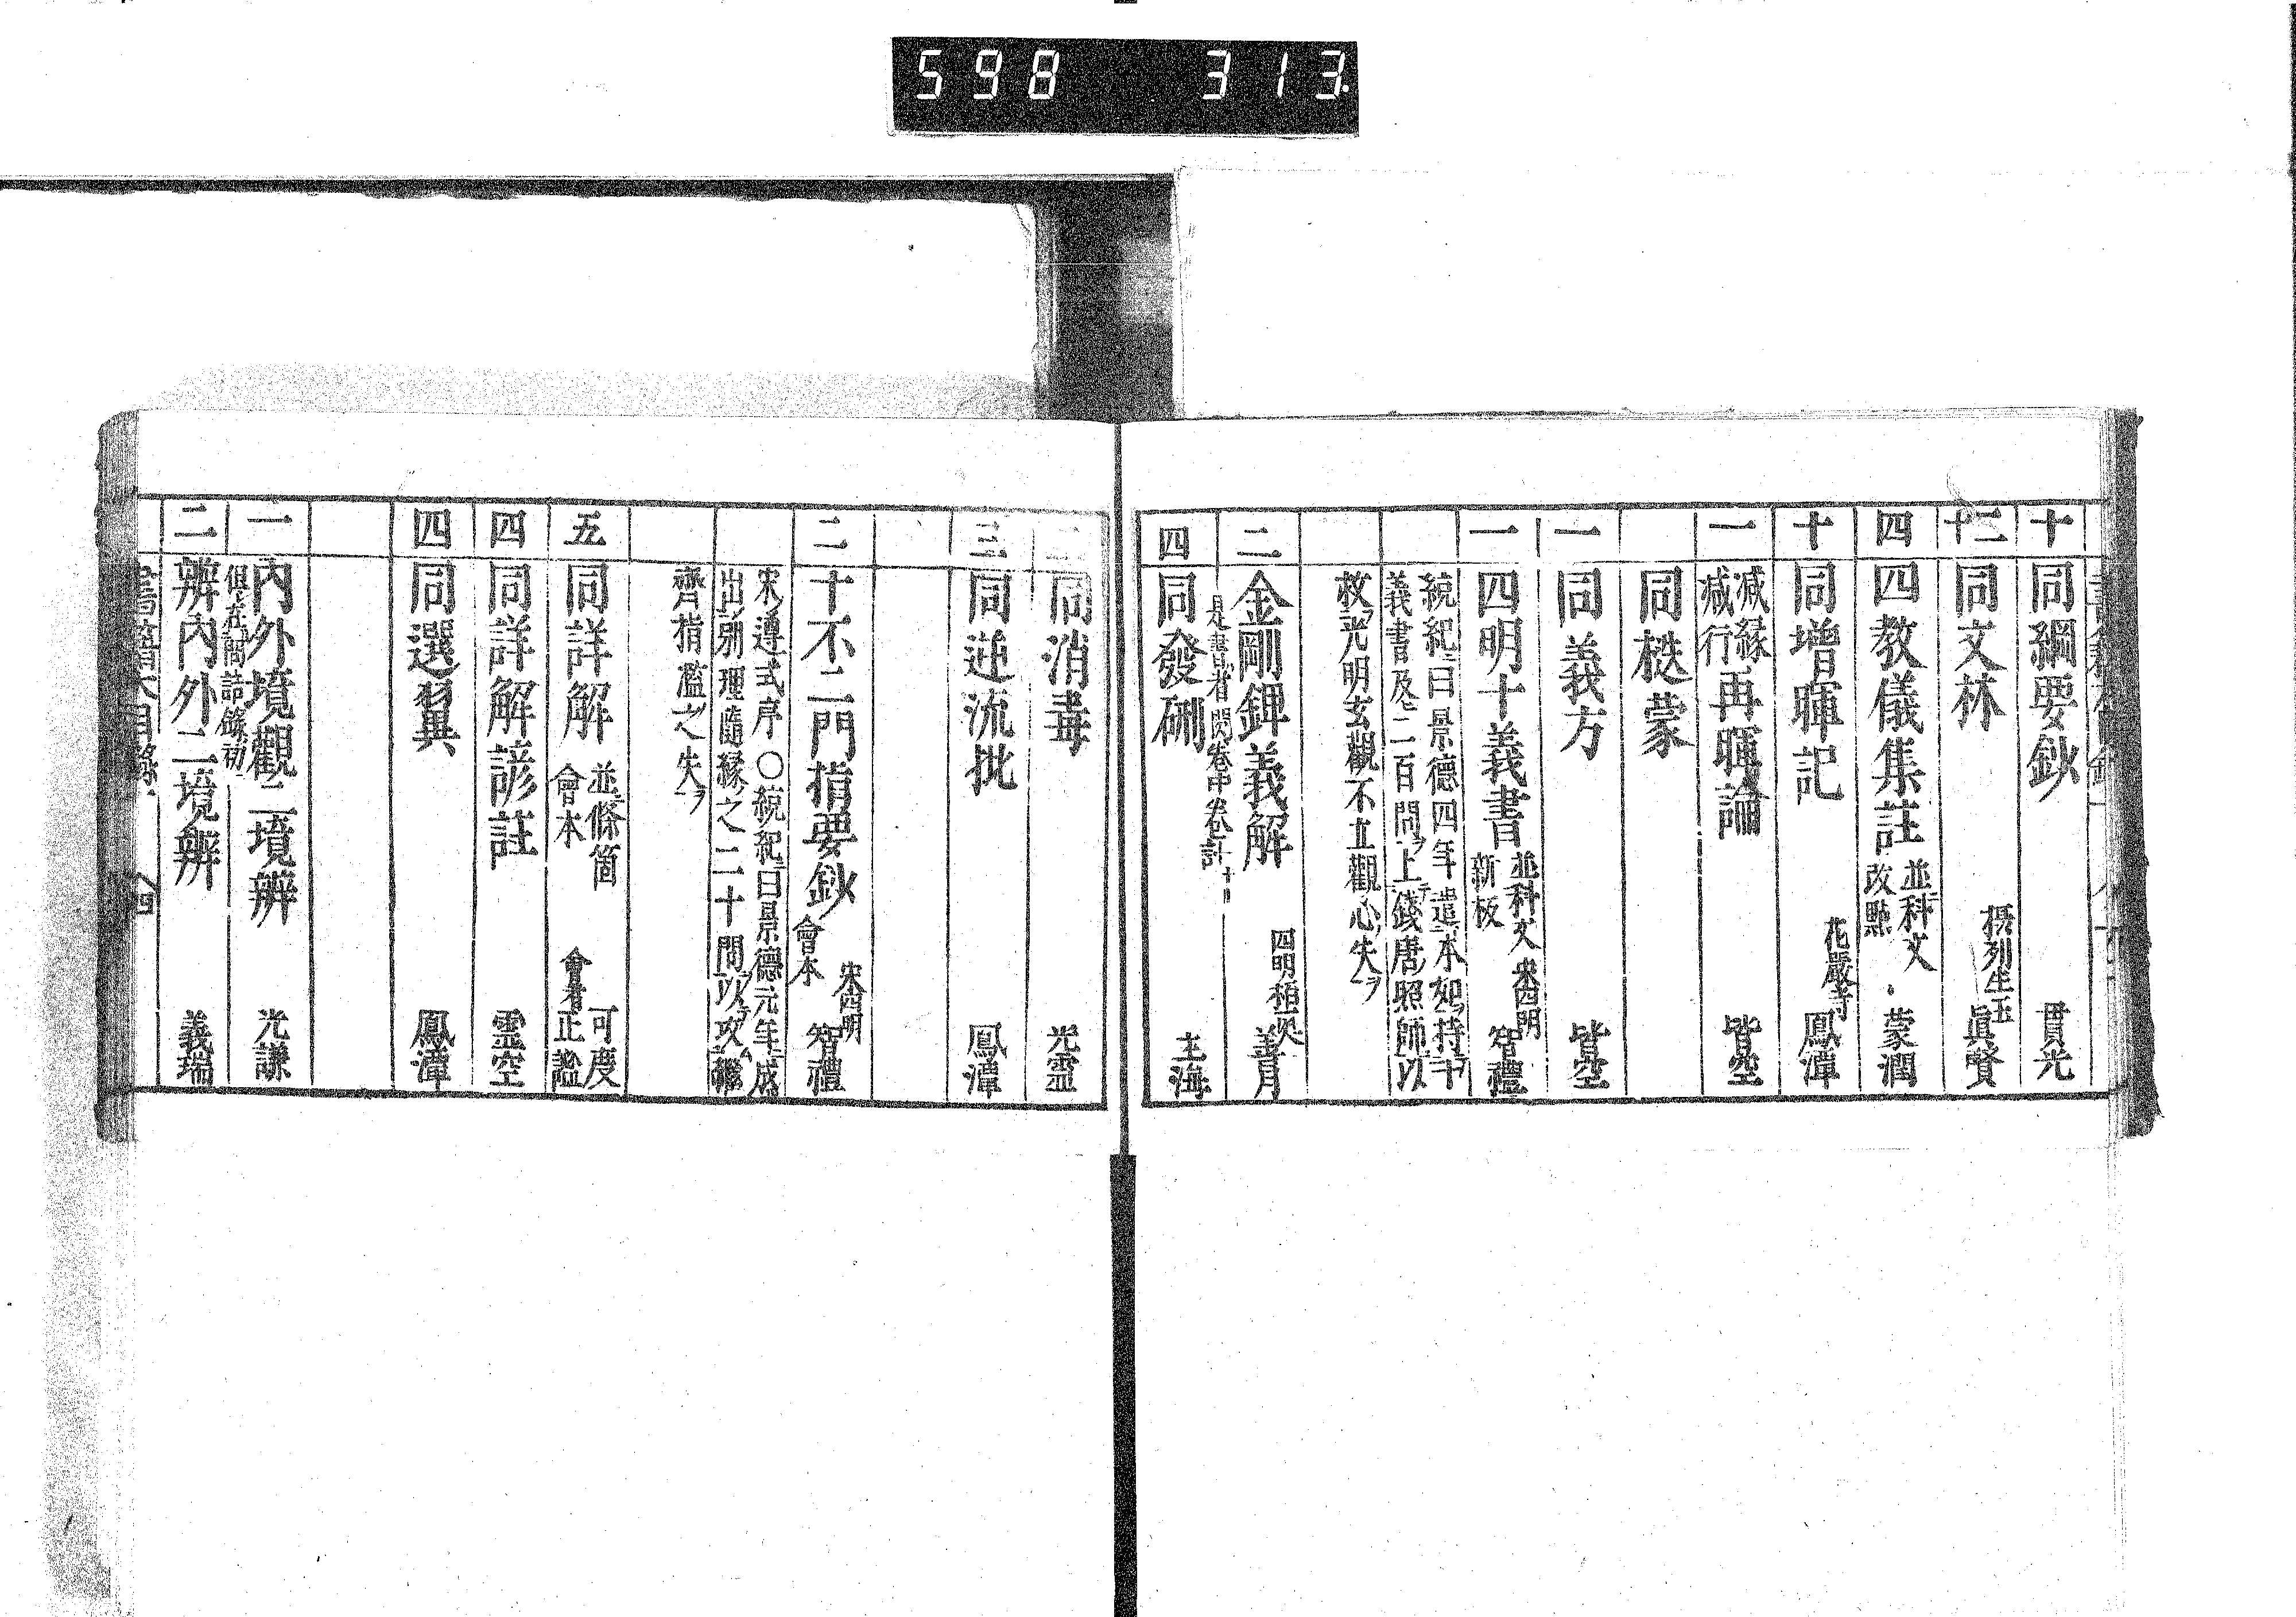 598 313
十 同綱要鈔 貫光
二十 同文林 攝列生玉 眞賢
四 四教儀集註 並科文 改點 蒙潤
十 同增暉記 花嚴寺 鳳潭
一 减緣减行再暉論 皆空
同㮇蒙
一 同義方 皆空
一 四明十義書 並科文 新板 宋四明 智禮
統紀曰景德四年遣本如持十
義書及二百問上錢唐照師以
救光明玄觀不立觀心失ヲ
二 金剛錍義解 四明柏庭 善月
是書省關卷中卷
四 同發硎 主海
同消毒 光霊
三 同逆流批 鳳潭
二 十不二門指要鈔 會本 宋四明 智禮
宋ノ遵式序〇統紀曰景德元年成
出別理隨緣之二十問以攻繼
齊指濫之失ヲ
五 同詳解 並條箇 會本 可度 會者 正謐
四 同詳解諺註 霊空
四 同選翼 鳳潭
一 內外境觀二境辨 光謙
俱在闢詰錄初
二 辨內外二境辨 義瑞
書籍大目錄 八 四